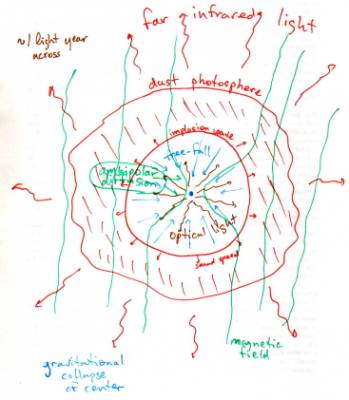 far infrared light
~1 light year
across
dust photosphere
implosion wave
free-fall
ambipolar
diffusion
optical light
sound speed
magnetic
field
gravitational
collapse
of center